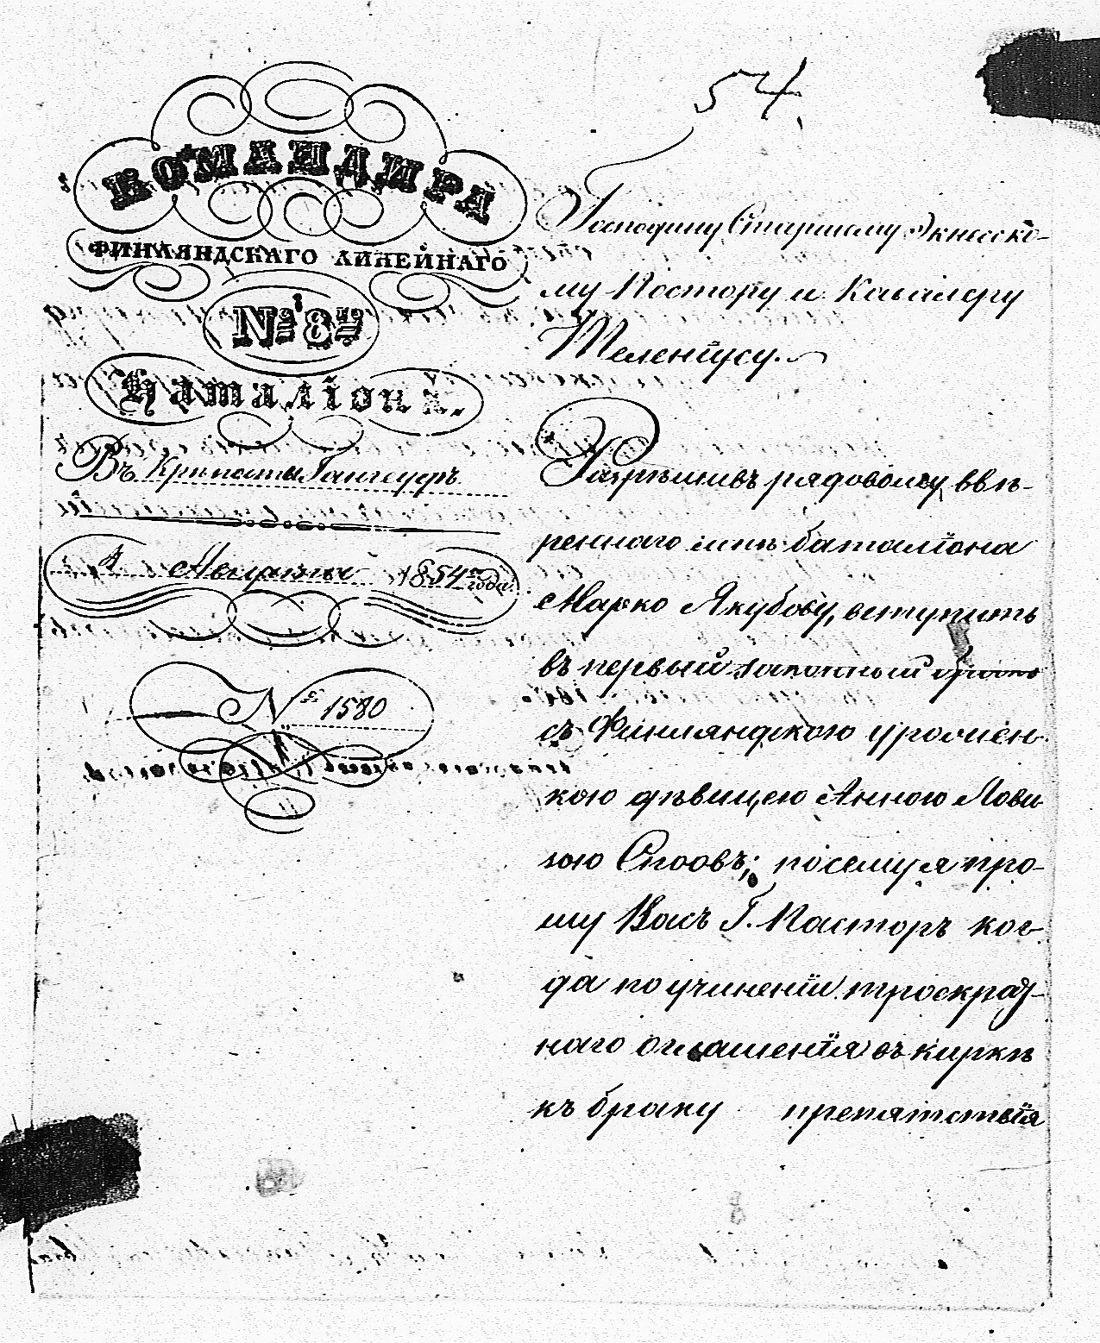 54
КОМАНДИРА
ФИНЛЯНДСКАГО ЛИНЕЙНАГО
№ 8го
Баталіона.
Въ Крѣпости Гангеудъ
4 Августа 1854 года.
№ 1580
Господину Старшему Экнеско-
му Пастору и Кавалеру
Желеніусу.
Разрѣшивъ рядовому ввѣ-
реннаго мнѣ баталіона
Марко Якубову, вступить
въ первый законный бракъ
съ Финляндскою уромен-
кою дѣвицею Анною Лови-
зою Споовъ; посему я про-
шу Васъ Г. Пасторъ ког-
да по учиненіи троекрат-
наго оглашенія въ киркѣ
къ браку препятствія